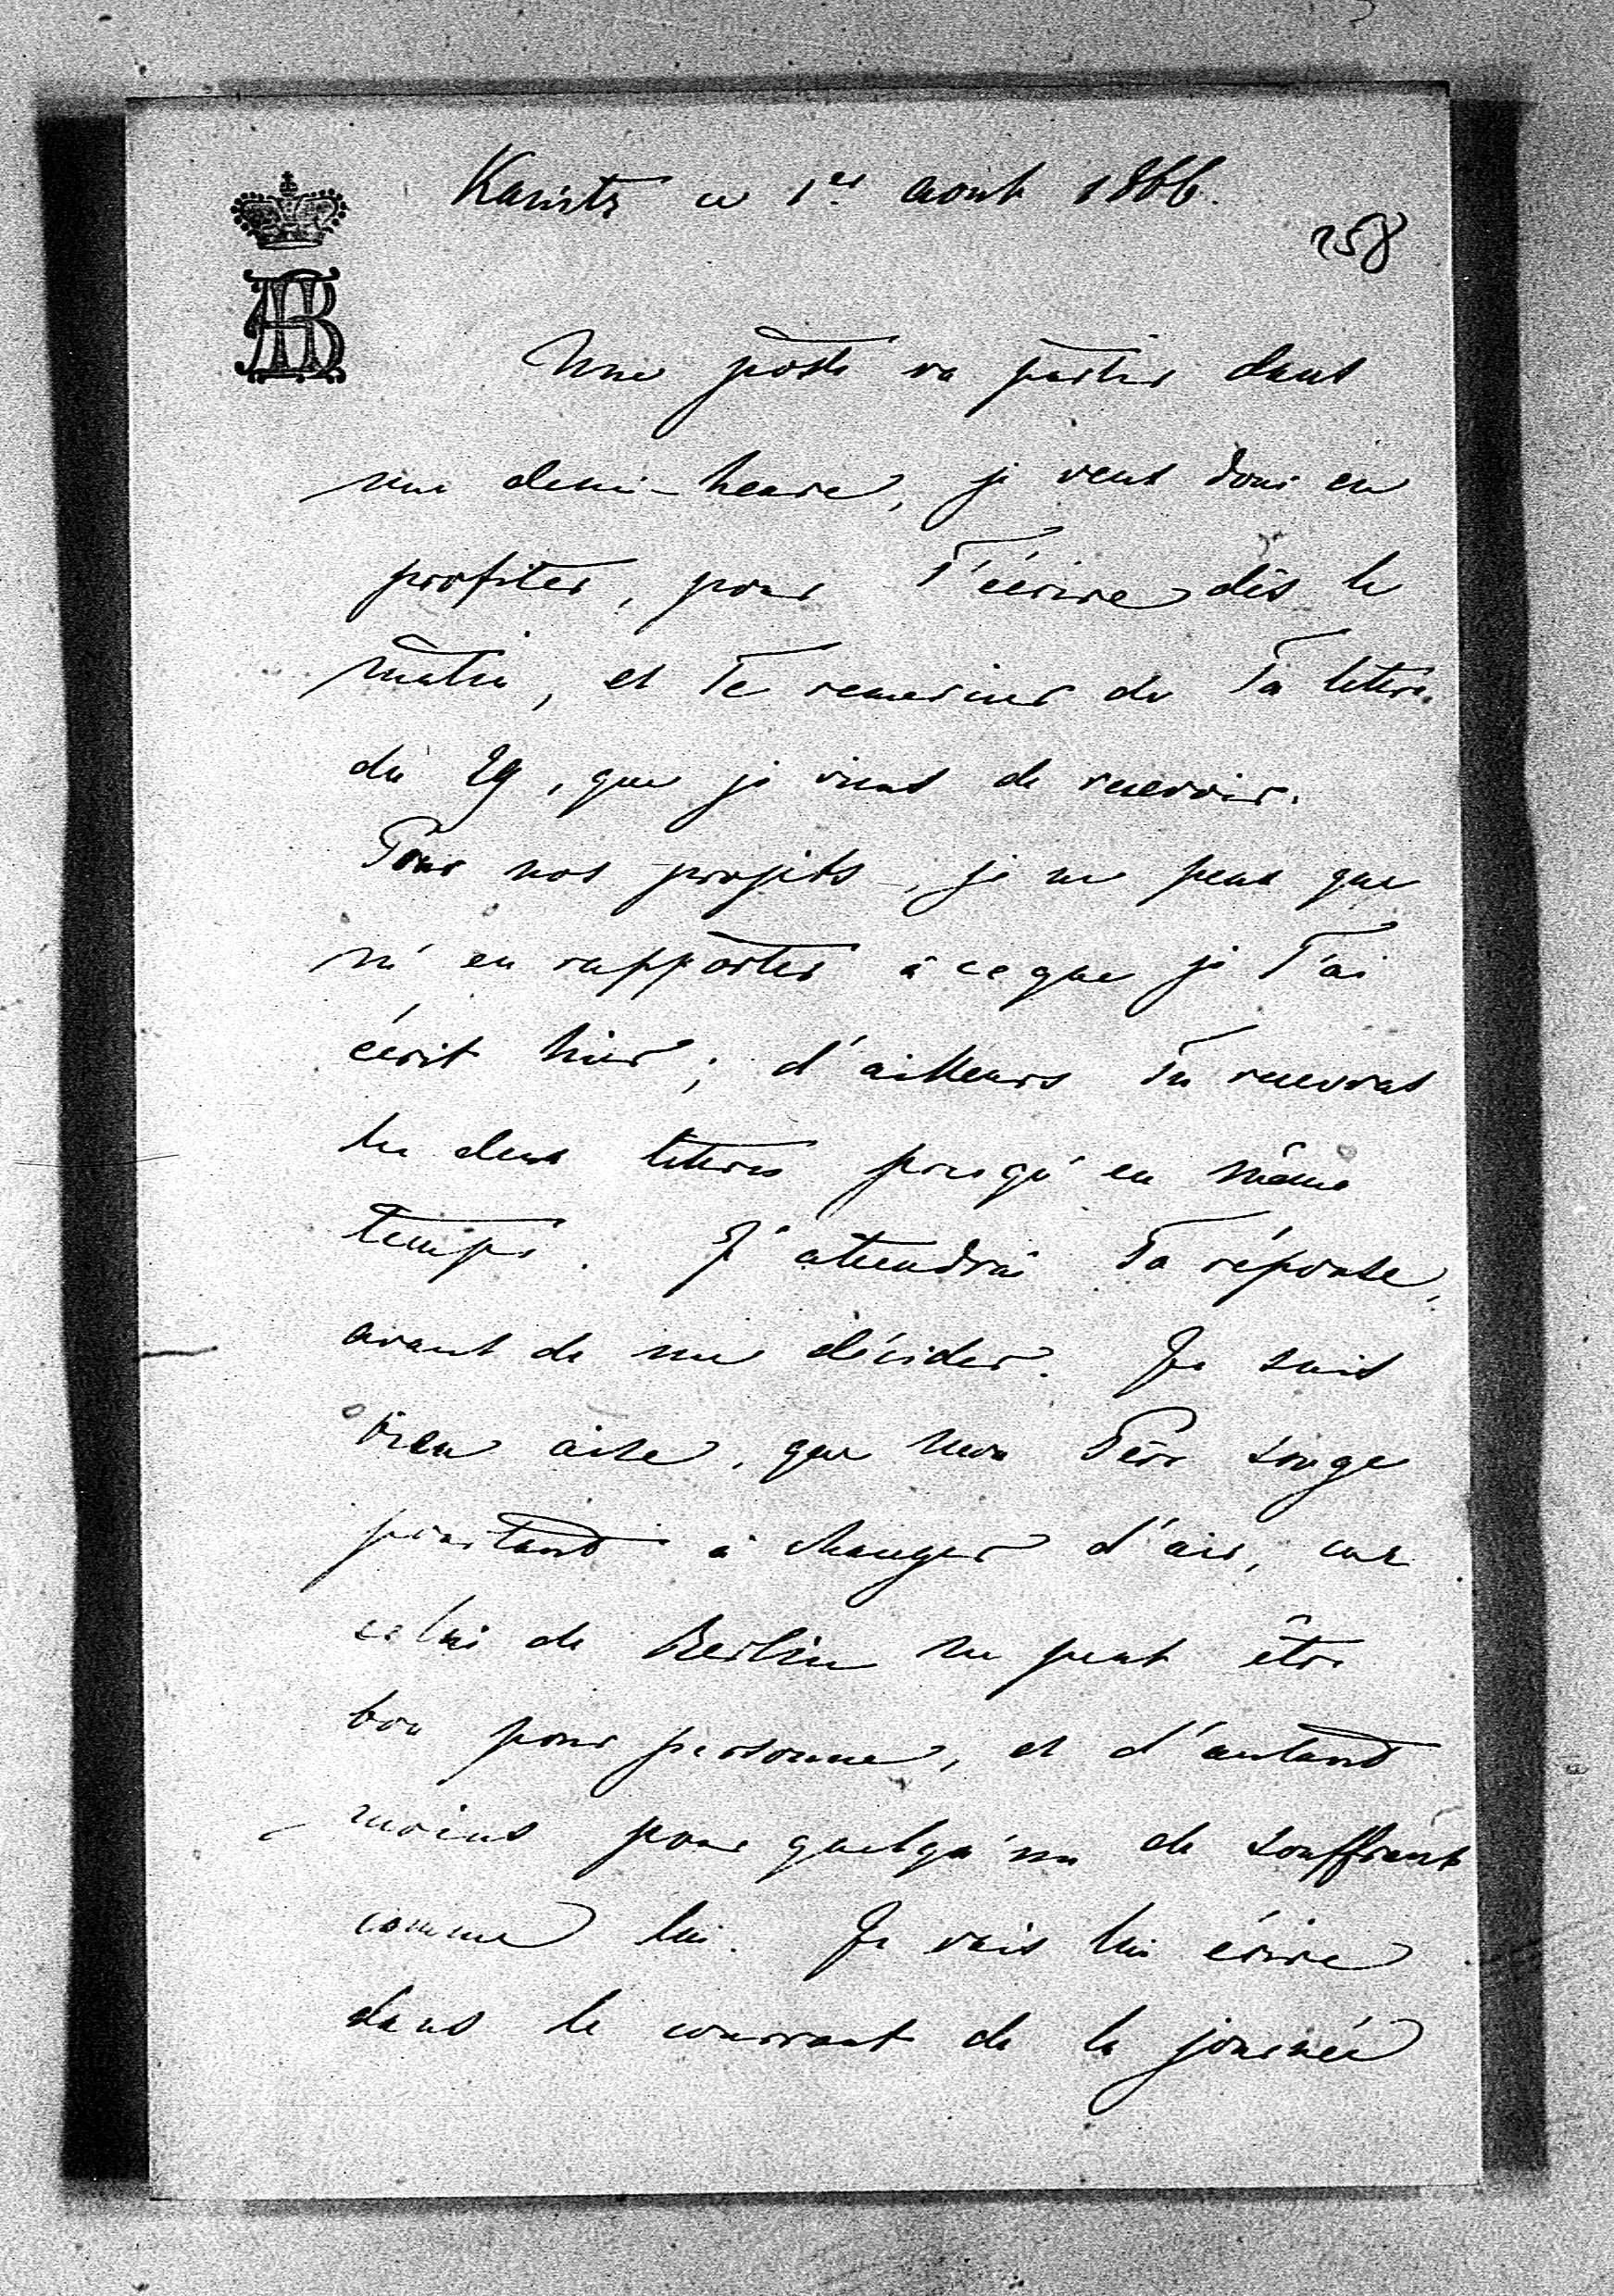 Kanitz ce 1er aout 1866.
258
AB
Une poste va partir dans
une demi-heure, je veux donc en
profiter, pour T'écrire dès le
matin, et Te remercier de Ta lettre
du 29, que je viens de recevoir.
Pour nos projets, je ne peux que
m'en rapporter à ce que je T'ai
écrit hier; d'ailleurs Tu recevras
les deux lettres presqu'en même
temps. J'attendrai Ta réponse,
avant de me décider. Je suis
bien aise, que mon Père songe
pourtant à changer d'air, car
celui de Berlin ne peut être
bon pour personne, et d'autant
moins pour quelqu'un de souffrant
comme lui. Je vais lui écrire
dans le courrant de la journée